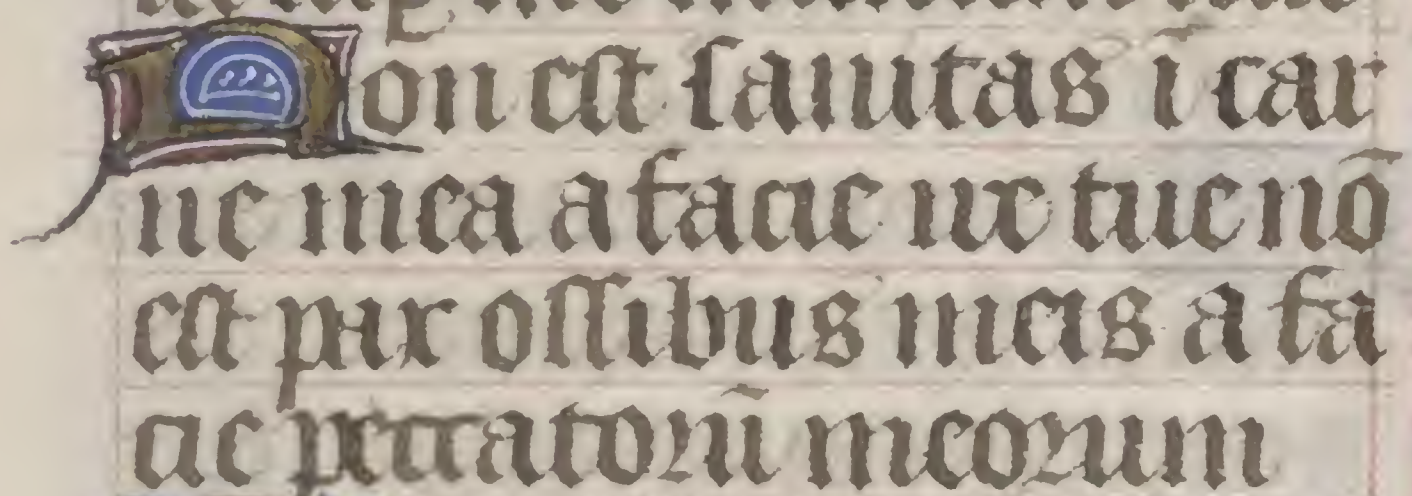 Non est sanitas ī car
ne mea a facie ire tue nō
est pax ossibus meis a fa
cie peccatorū meorum